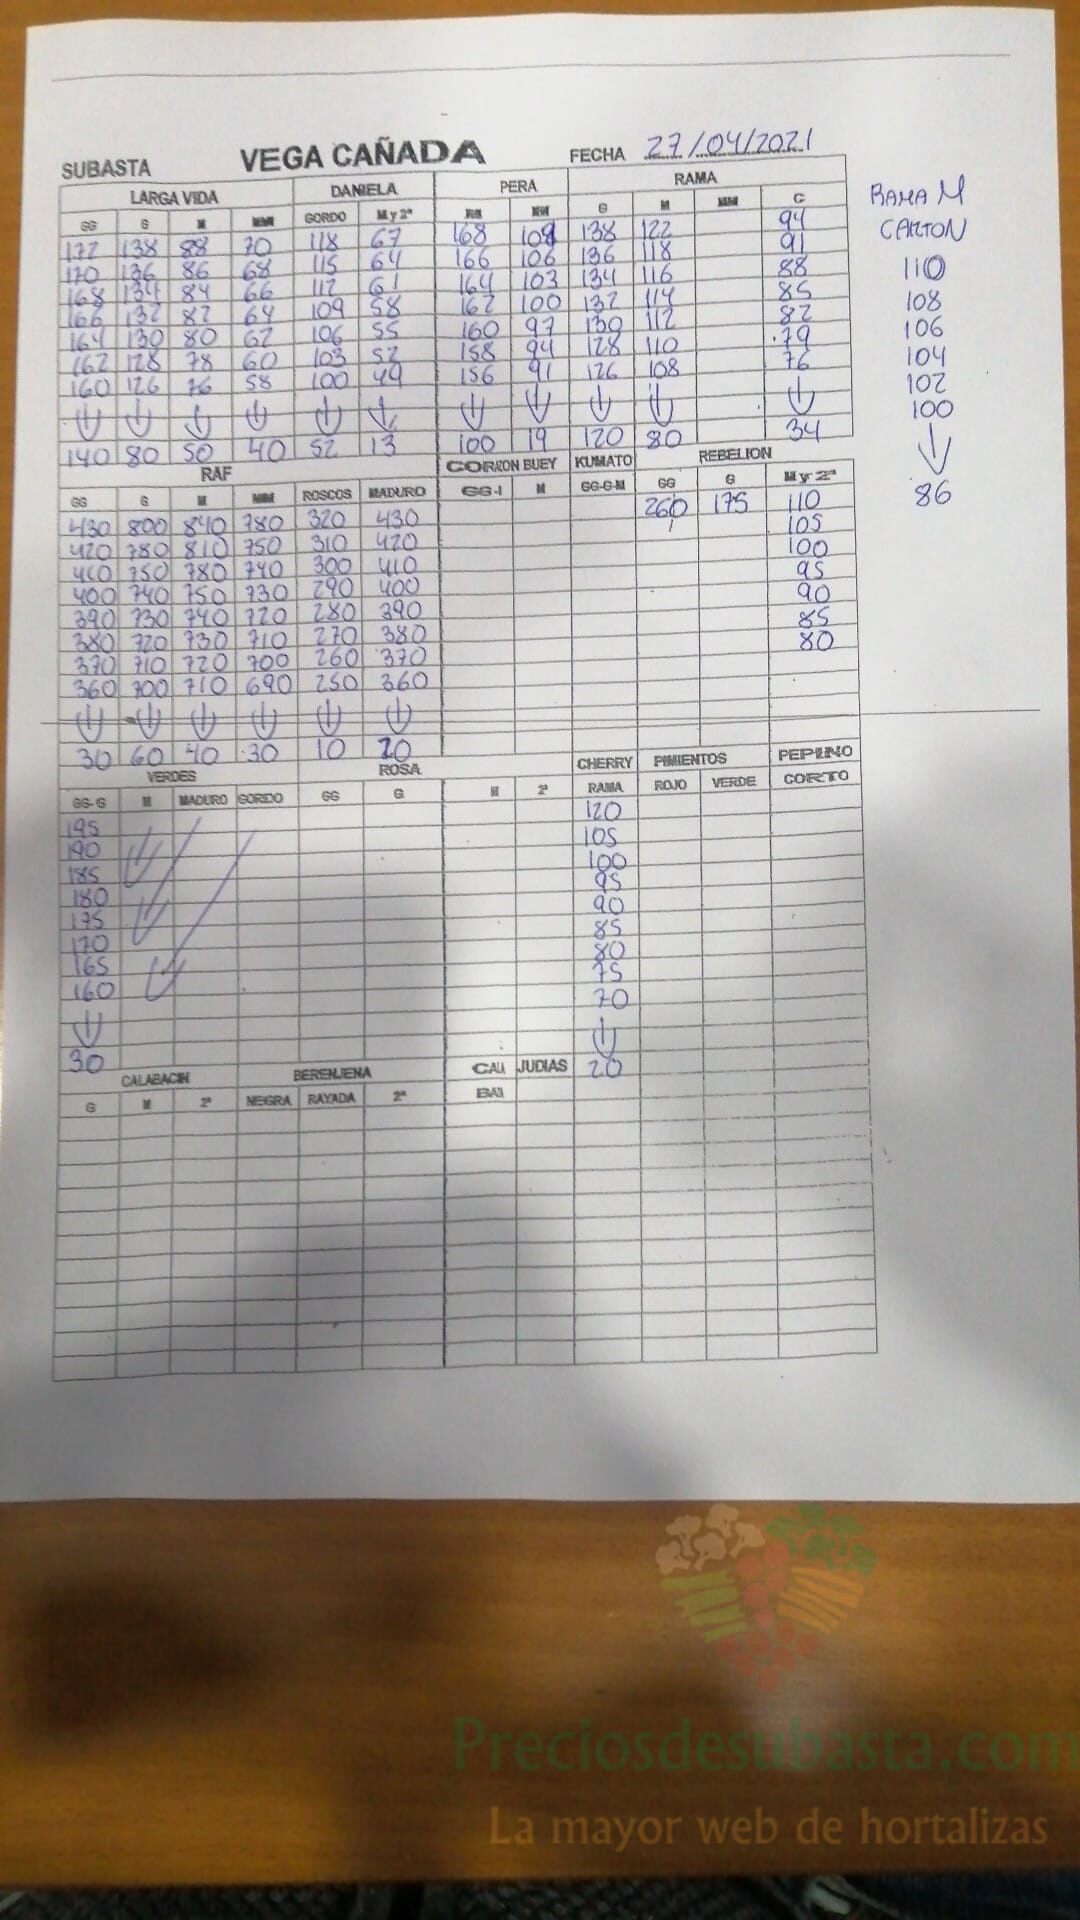 SUBASTA VEGA CAÑADA FECHA 27/04/2021
LARGA VIDA DANIELA PERA RAMA
GG G M MM GORDO M y 2ª MM G M MM C
172 138 88 70 118 67 168 109 138 122 94
170 136 86 68 115 64 166 106 136 118 91
168 134 84 66 112 61 164 103 134 116 88
166 132 82 64 109 58 162 100 132 114 85
164 130 80 62 106 55 160 97 130 112 82
162 128 78 60 103 52 158 94 128 110 79
160 126 76 58 100 49 156 91 126 108 76
140 80 50 40 52 13 100 19 120 80 34
RAMA M
CARTON
110
108
106
104
102
100
86
RAF CORAZON BUEY KUMATO REBELION
GG G M MM ROSCOS MADURO M GG-G-M GG G M y 2ª
430 800 840 780 320 430 260 175 110
420 780 810 750 310 420 105
410 750 780 740 300 410 100
400 740 750 730 290 400 95
390 730 740 720 280 390 90
380 720 730 710 270 380 85
370 710 720 700 260 370 80
360 700 710 690 250 360
30 60 40 30 10 20
VERDES ROSA CHERRY PIMIENTOS PEPINO
GG-G M MADURO GORDO GG G M 2ª RAMA ROJO VERDE CORTO
195 120
190 105
185 100
180 95
175 90
170 85
165 80
160 75
70
30 20
CALABACIN BERENJENA JUDIAS
G M 2ª NEGRA RAYADA 2ª
Preciosdesubasta.com
La mayor web de hortalizas